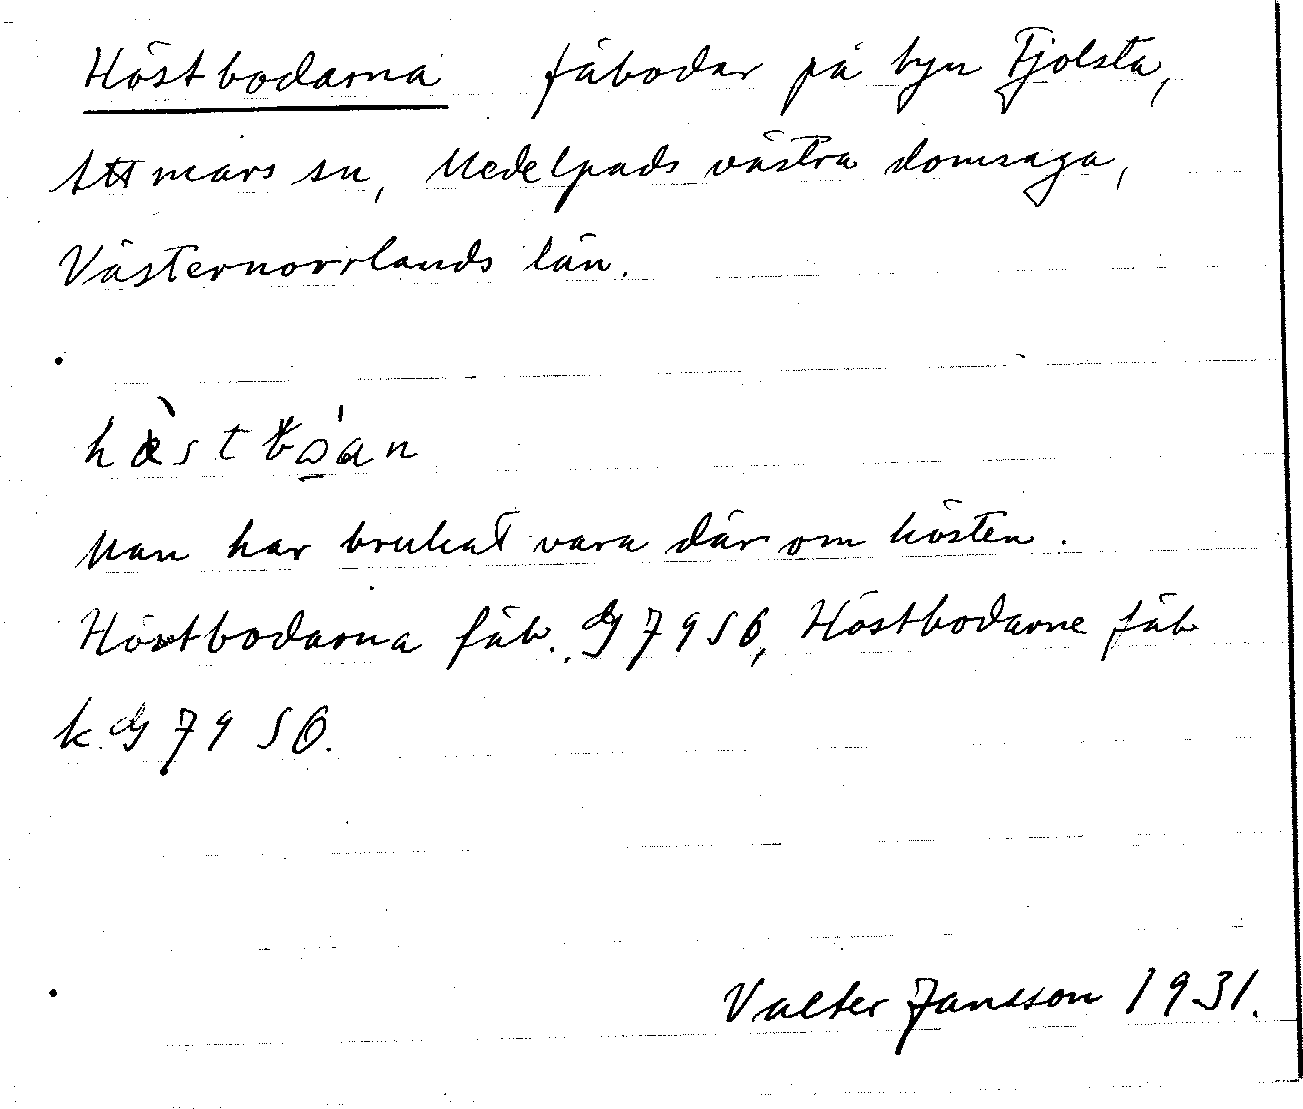 Höstbodarna fäbodar på byn Fjolsta,
Attmars sn, Medelpads västra domsaga,
Västernorrlands län.
Man har brukat vara där om hösten.
Höstbodarna fäb. GJ 79 SO, Höstbodarne fäb
k. GJ 79 SO.
Valter Jansson 1931.